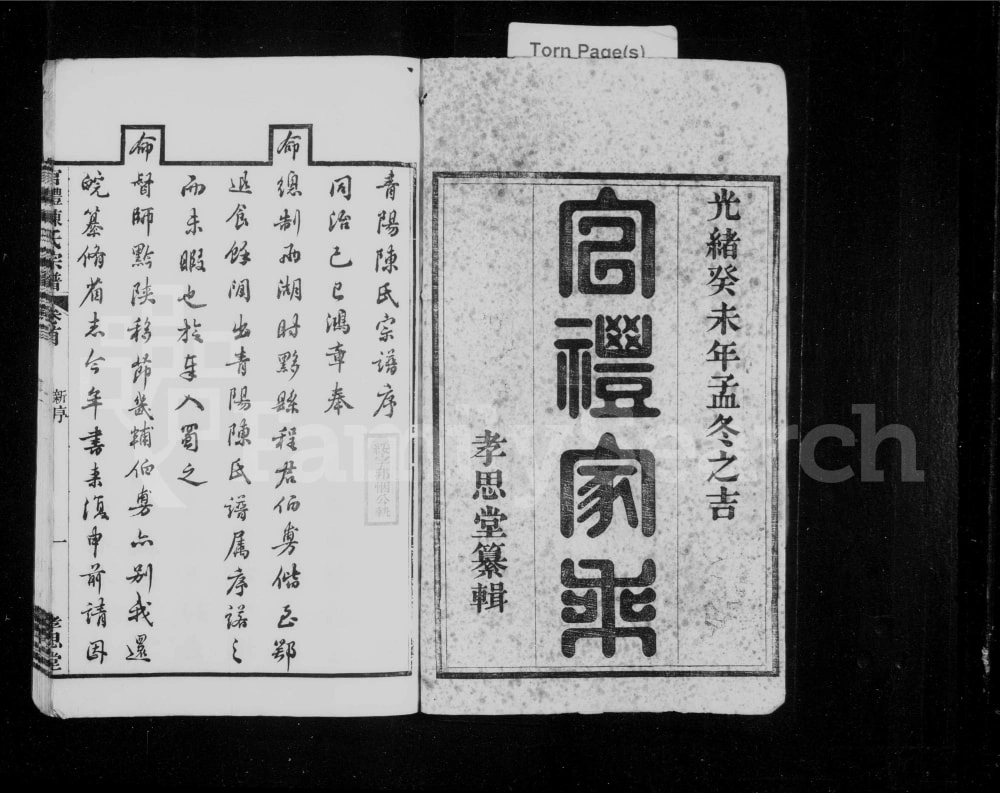 Torn Page(s)
光緒癸未年孟冬之吉
官禮家乘
孝思堂纂輯
青陽陳氏宗譜序
同治己巳鴻章奉
命總制兩湖時黟縣程君伯旉偕至鄂
退食餘閒出青陽陳氏譜属序諾之
而未暇也旋奉入蜀之
命督師黔陝移節畿輔伯旉亦别我還
皖纂脩省志今年書来復申前請因
官禮陳氏宗譜
卷首
新序
一
孝思堂
FamilySearch